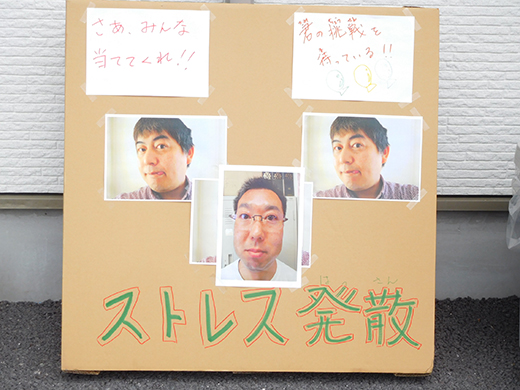 さあ、みんな
当ててくれ!!
君の挑戦を
待っている!!
はっ さん
ストレス発散